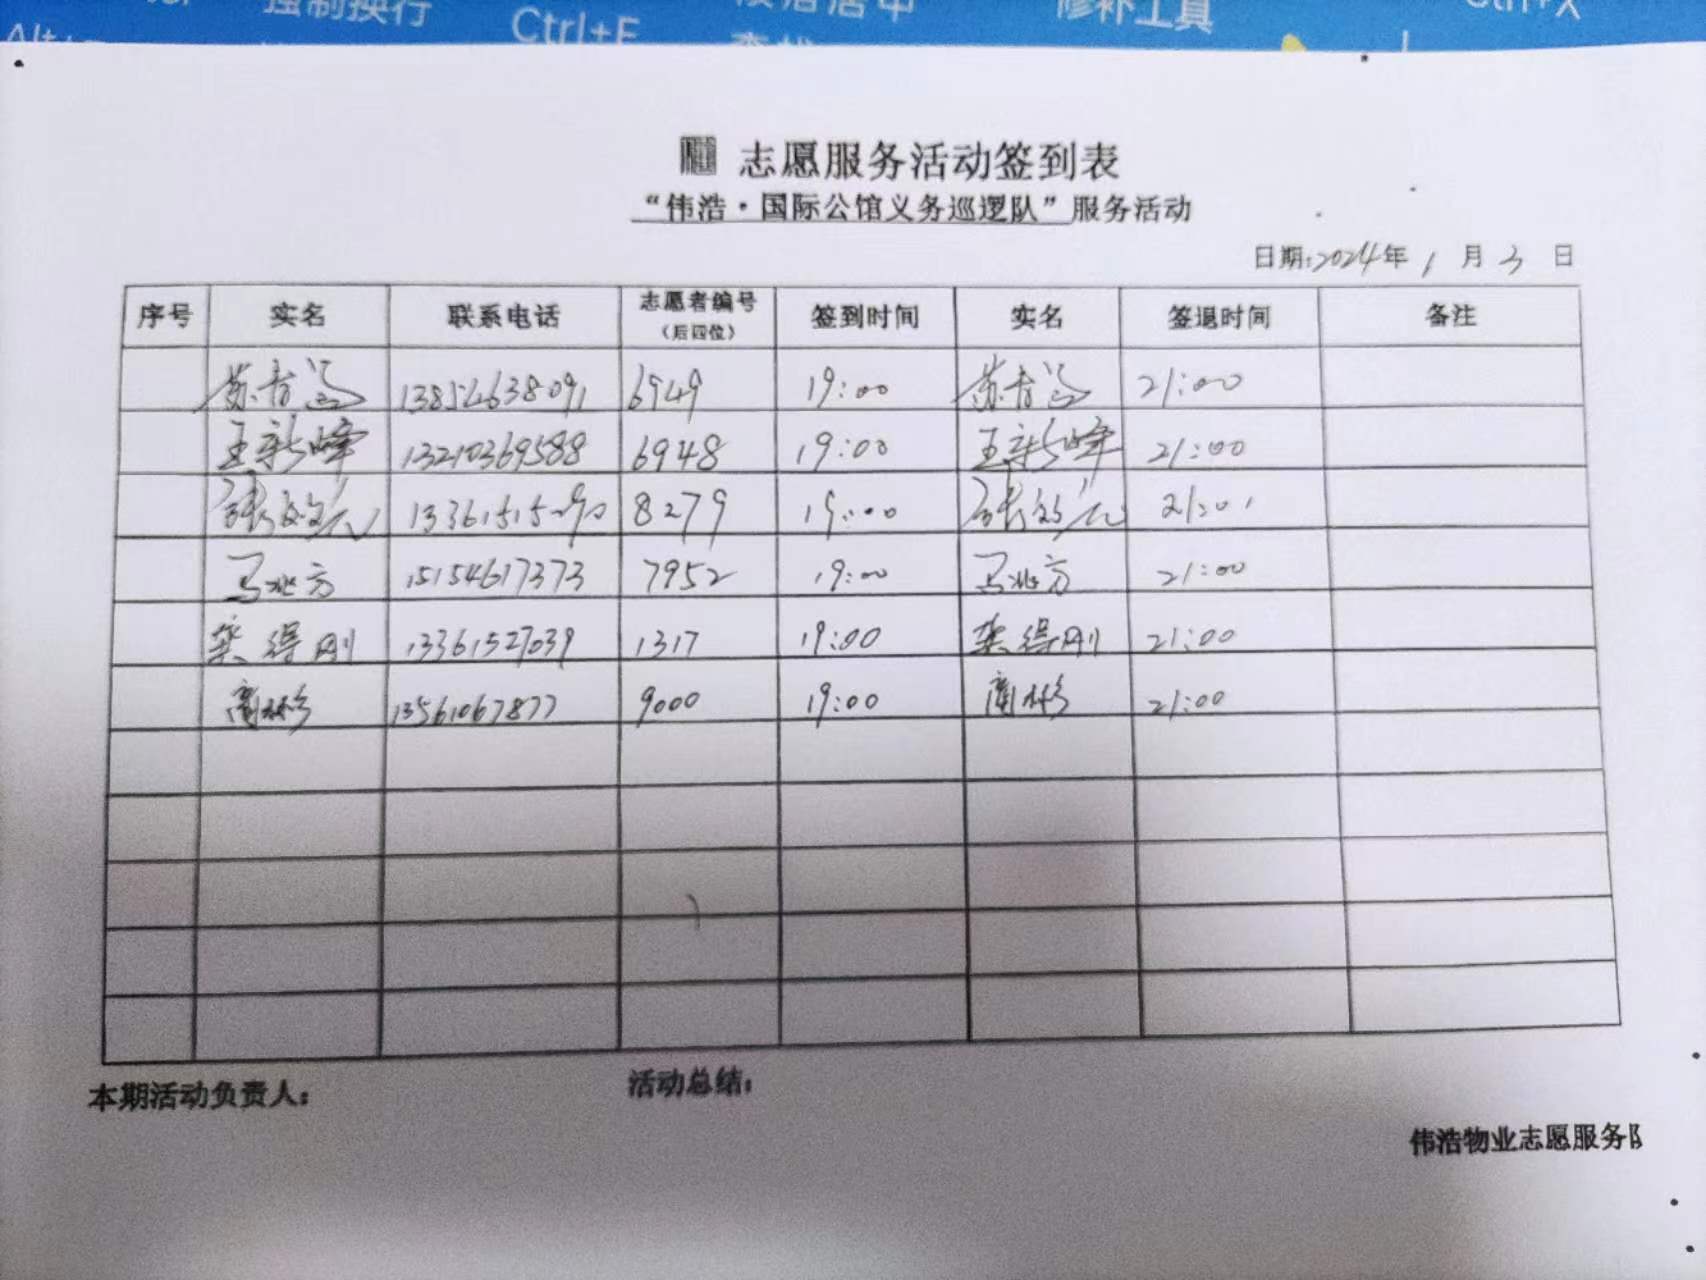 强制换行
Ctrl+F
修补工具
Ctrl+X
志愿服务活动签到表
“伟浩·国际公馆义务巡逻队”服务活动
日期:2024年 1 月 3 日
序号 实名 联系电话 志愿者编号（后四位） 签到时间 实名 签退时间 备注
13854638091 6949 19:00 21:00
王新峰 13210369588 6948 19:00 王新峰 21:00
8279 19:00
马北方 15154617373 7952 19:00 马北方 21:00
栾得刚 13361527039 1317 19:00 栾得刚 21:00
商彬 13561067877 9000 19:00 商彬 21:00
本期活动负责人： 活动总结：
伟浩物业志愿服务队